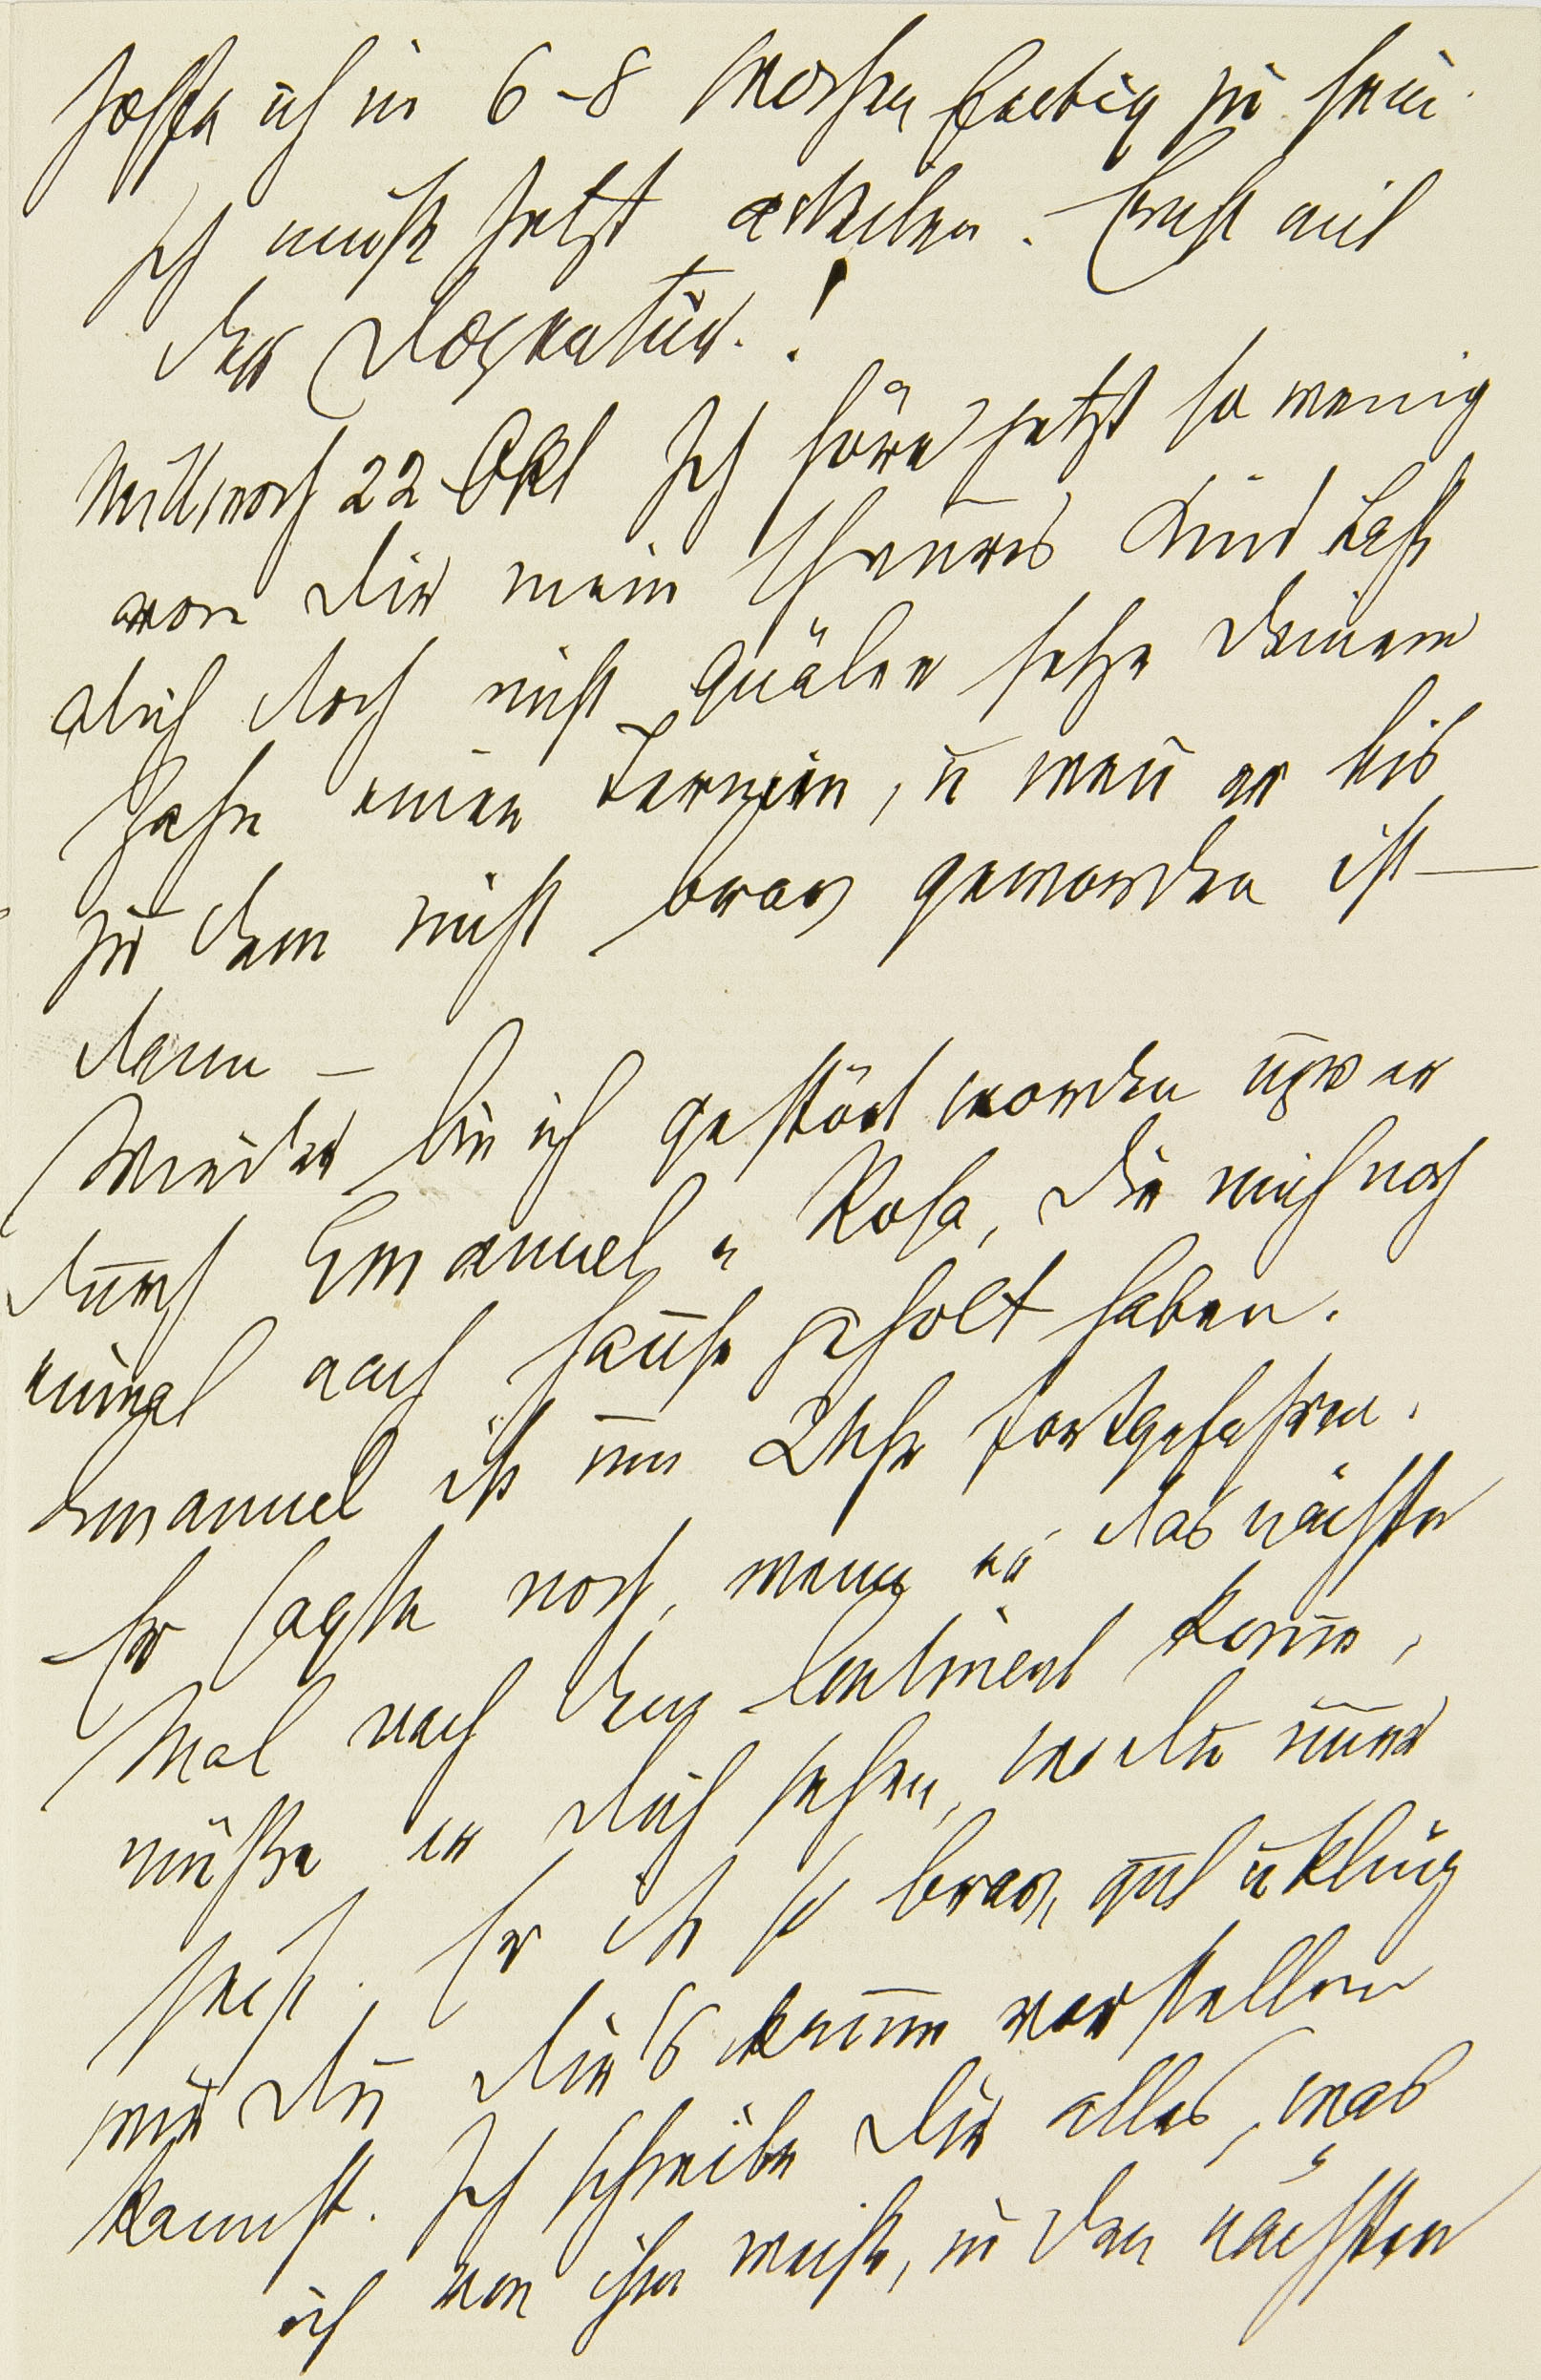 hoffe ich in 6-8 Wochen fertig zu sein.
Ich muß jetzt arbeiten. Ernst mit
der Dozentur.!
Mittwoch 22 Okt Ich höre jetzt so wenig
von Dir mein theures Kind Laß
Dich doch nicht quälen setze Deinem
Zahn einen Termin, u wenn er bis
zu dem nicht brav geworden ist —
dann —
Wieder bin ich gestört worden
durch Emanuel u Rosa, die mich noch
einmal nach Hause geholt haben.
Emanuel ist um 2 Uhr fortgefahren.
Er sagte noch, wenn er das nächste
Mal nach dem Continent kom̅e,
müsse er Dich sehen, wo Du im̅er
seist. Er ist so brav, gut u klug
wie Du Dir's kaum vorstellen
kannst. Ich schreibe Dir alles, was
ich von ihm weiß, in den nächsten